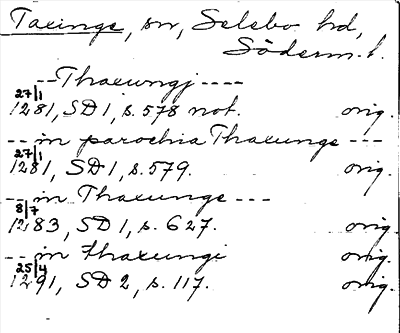 Taxinge, sn, Selebo hd,
Söderm. l.
-- Thaxungj ----
27/1
1281, SD 1, s. 578 not. orig.
-- in parochia Thaxunge ---
27/1
1281, SD 1, s. 579. orig.
-- in Thaxunge ---
8/7
1283, SD 1, s. 627. orig.
-- in thaxungi orig.
25/4
1291, SD 2, s. 117. orig.